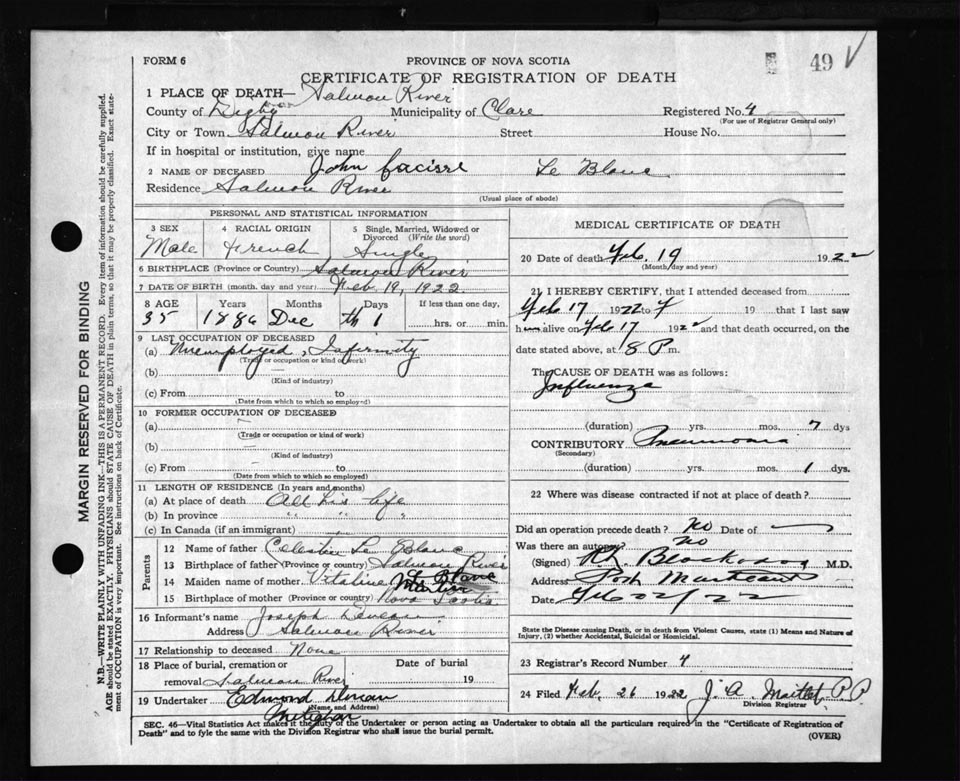 49 V
FORM 6
PROVINCE OF NOVA SCOTIA
CERTIFICATE OF REGISTRATION OF DEATH
1 PLACE OF DEATH— Salmon River
County of Digby Municipality of Clare Registered No. 4
(For use of Registrar General only)
City or Town Salmon River Street House No.
If in hospital or institution, give name
2 NAME OF DECEASED John Le Blanc
Residence Salmon River
(Usual place of abode)
PERSONAL AND STATISTICAL INFORMATION
3 SEX 4 RACIAL ORIGIN 5 Single, Married, Widowed or Divorced (Write the word)
Male French Single
6 BIRTHPLACE (Province or Country) Salmon River
7 DATE OF BIRTH (month, day and year) Feb 19, 1922
8 AGE Years Months Days If less than one day,
35 1886 Dec th 1 hrs. or min.
9 LAST OCCUPATION OF DECEASED
(a) Unemployed, Infirmity
(Trade or occupation or kind of work)
(b)
(Kind of industry)
(c) From to
(Date from which to which so employed)
10 FORMER OCCUPATION OF DECEASED
(a)
(Trade or occupation or kind of work)
(b)
(Kind of industry)
(c) From to
(Date from which to which so employed)
11 LENGTH OF RESIDENCE (In years and months)
(a) At place of death All his life
(b) In province " " "
(c) In Canada (if an immigrant)
Parents
12 Name of father Celestin Le Blanc
13 Birthplace of father (Province or country) Salmon River
14 Maiden name of mother Vitaline Le Blanc
15 Birthplace of mother (Province or country) Nova Scotia
16 Informant's name Joseph
Address Salmon River
17 Relationship to deceased None
18 Place of burial, cremation or removal Salmon River Date of burial 19
19 Undertaker Edmond
(Name and Address)
Meteghan
MEDICAL CERTIFICATE OF DEATH
20 Date of death Feb. 19 1922
(Month, day and year)
21 I HEREBY CERTIFY, that I attended deceased from
Feb 17 1922 to 19 that I last saw
him alive on Feb 17 1922 and that death occurred, on the
date stated above, at 8 P m.
The CAUSE OF DEATH was as follows:
Influenza
(duration) yrs. mos. 7 dys
CONTRIBUTORY Pneumonia
(Secondary)
(duration) yrs. mos. 1 dys.
22 Where was disease contracted if not at place of death?
Did an operation precede death? No Date of
Was there an autopsy? No
(Signed) M.D.
Address
Date Feb 22/22
State the Disease causing Death, or in death from Violent Causes, state (1) Means and Nature of
Injury, (2) whether Accidental, Suicidal or Homicidal.
23 Registrar's Record Number 4
24 Filed Feb. 26 1922 J. A. P.P.
Division Registrar
SEC. 46—Vital Statistics Act makes it the duty of the Undertaker or person acting as Undertaker to obtain all the particulars required in the "Certificate of Registration of
Death" and to fyle the same with the Division Registrar who shall issue the burial permit.
(OVER)
MARGIN RESERVED FOR BINDING
N.B.—WRITE PLAINLY WITH UNFADING INK—THIS IS A PERMANENT RECORD. Every item of information should be carefully supplied.
AGE should be stated EXACTLY. PHYSICIANS should STATE CAUSE OF DEATH in plain terms, so that it may be properly classified. Exact statement of OCCUPATION is very important. See instructions on back of Certificate.